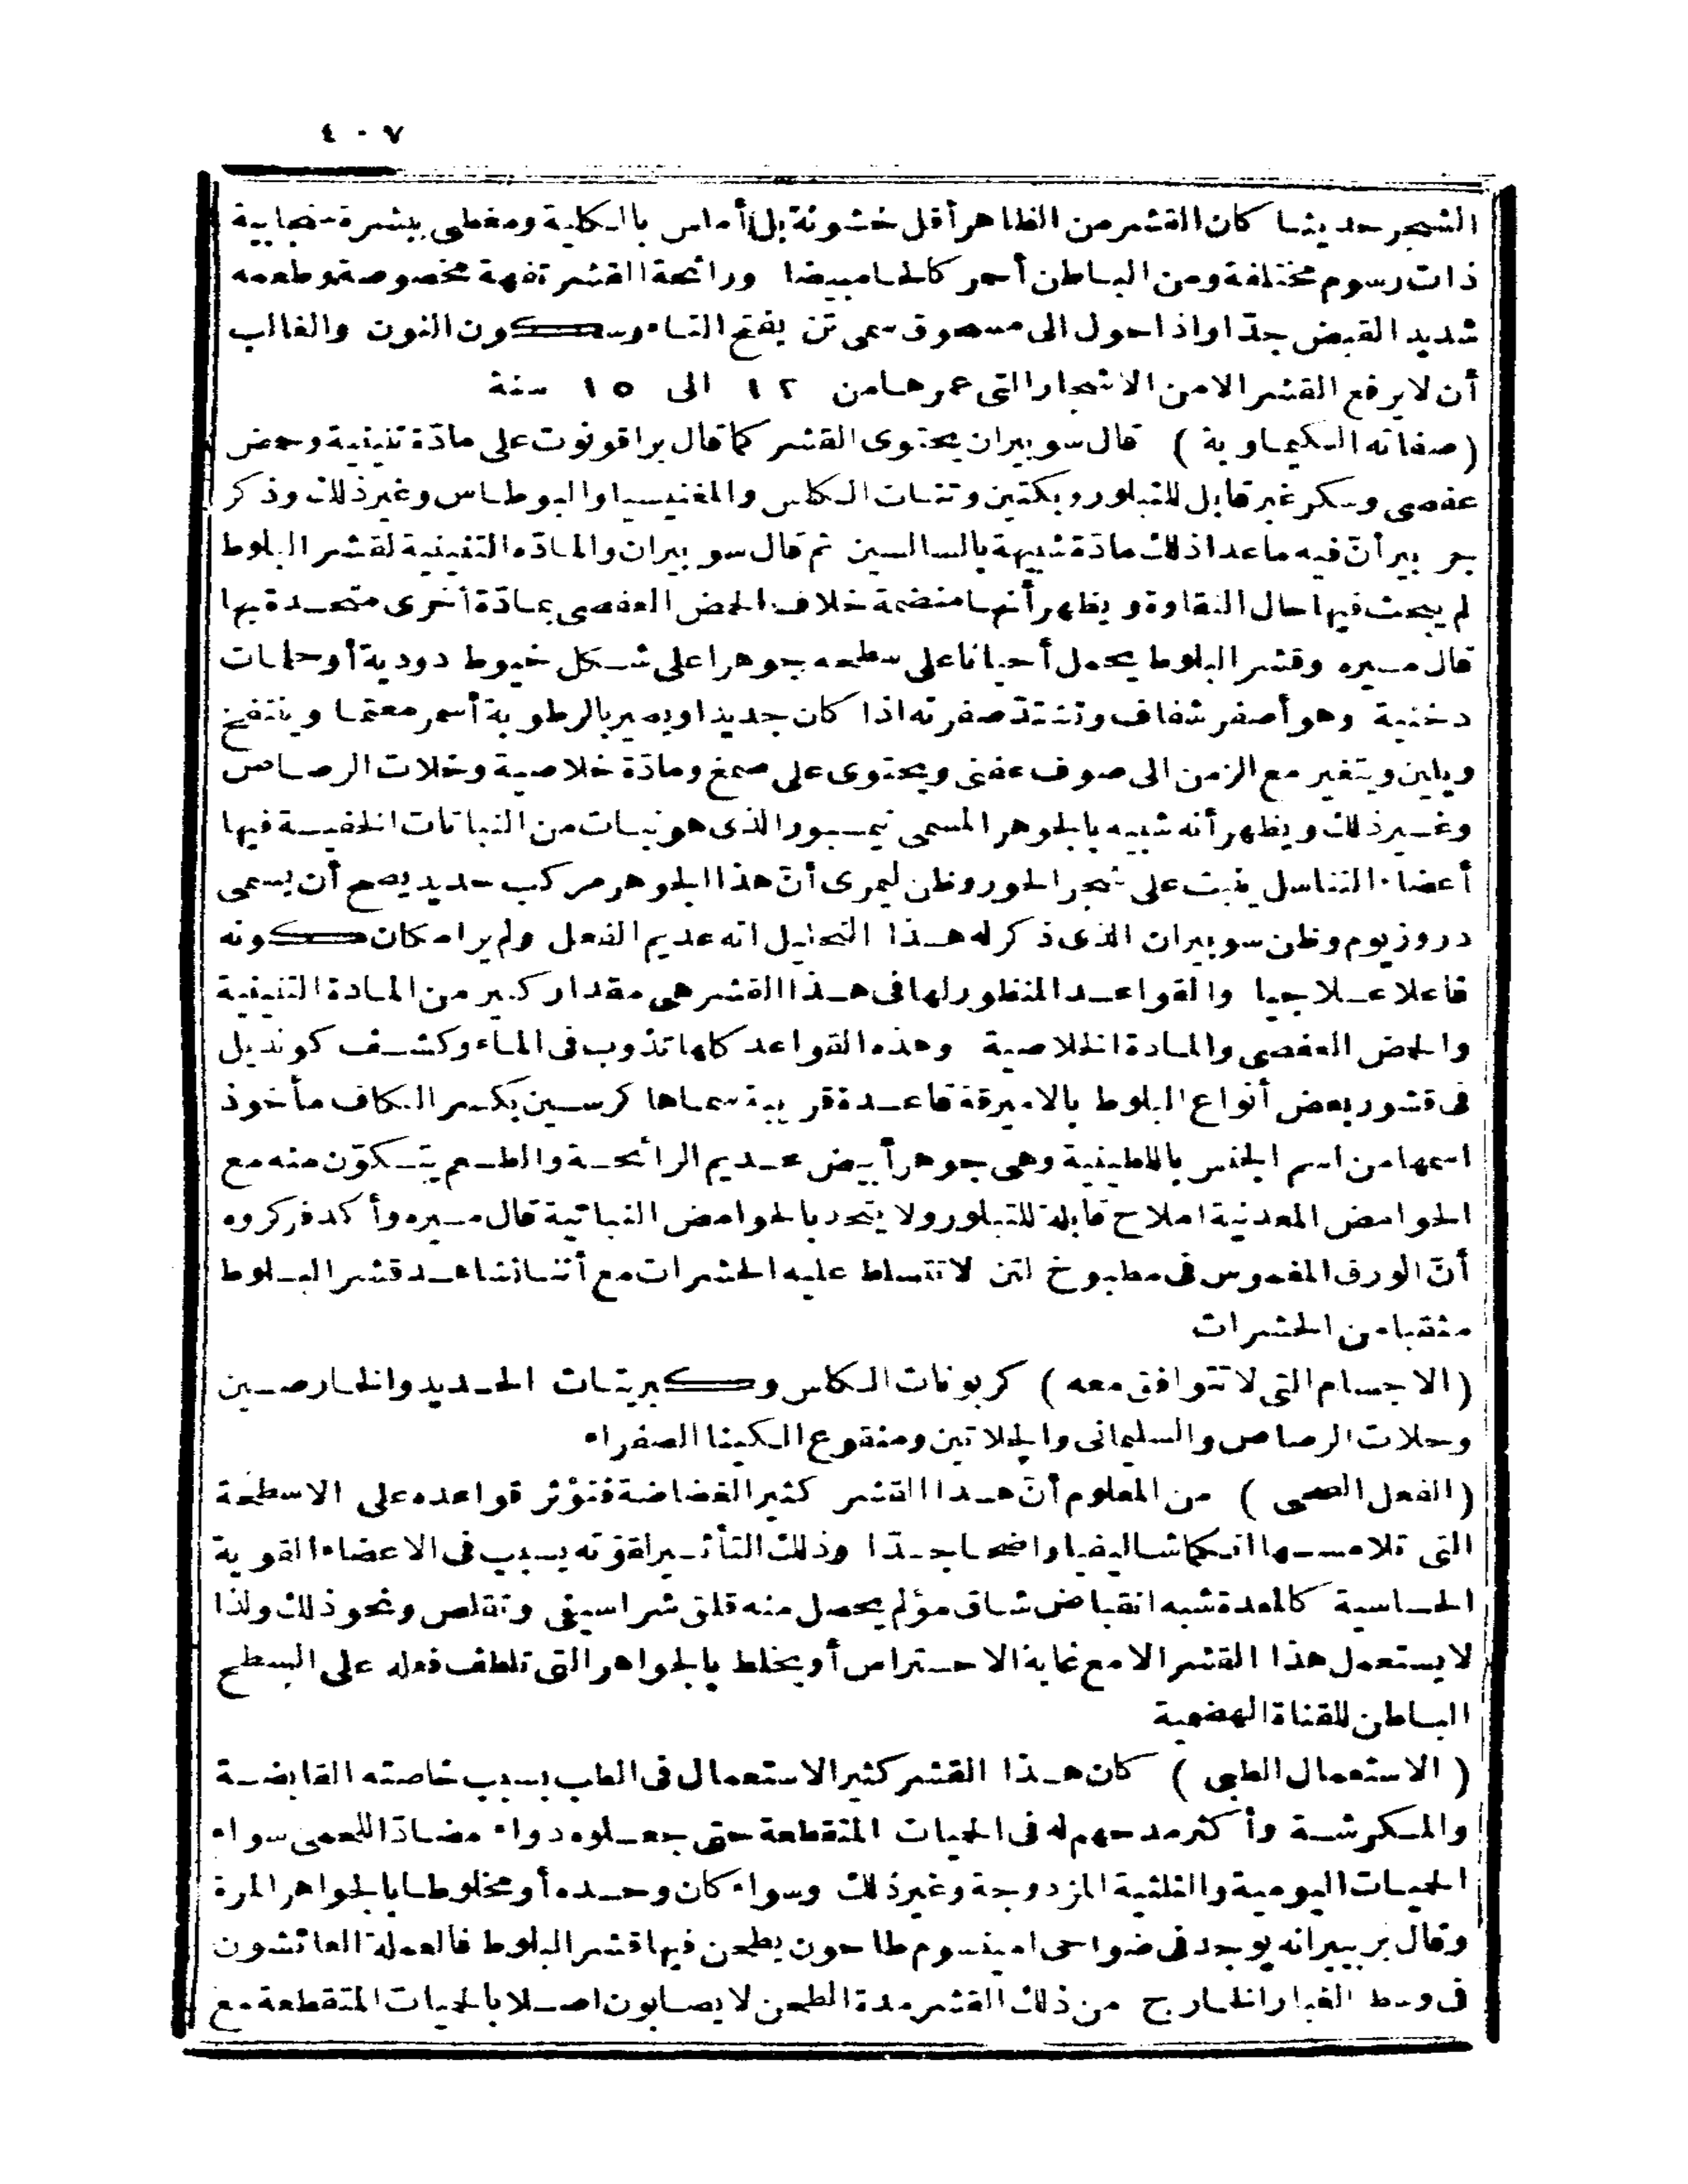 ٤٠٧
الشجر حديثا كان القشر من الظاهر أقل خشونة بل أملس بالكلية ومغطى ببشرة سنجابية
ذات رسوم مختلفة ومن الباطن أحمر كالحا مبيضا ورائحة القشر تفهة مخصوصة وطعمه
شديد القبض جدّا واذا حول الى مسحوق سمى تن بفتح التاء وسكون النون والغالب
أن لا يرفع القشر الا من الاشجار التى عمرها من ١٢ الى ١٥ سنة
(صفاته الكيماوية) قال سوبيران يحتوى القشر كما قال براقونوت على مادّة تنينية وحمض
عفصى وسكر غير قابل للتبلور وبكتين وتنات الكلس والمغنيسيا والبوطاس وغير ذلك وذكر
جربير أنّ فيه ما عدا ذلك مادّة شبيهة بالسالسين ثم قال سوبيران والمادّه التنينية لقشر البلوط
لم يبحث فيها حال النقاوة ويظهر أنها منضمة خلاف الحمض العفصى بمادّة أخرى متحدة بها
قال ميره وقشر البلوط يحمل أحيانا على سطحه جوهرا على شكل خيوط دودية أو حلمات
دخنية وهو أصفر شفاف وتشتدّ صفرته اذا كان جديدا ويصير بالرطوبة أسمر معتما وينتفخ
ويلين ويتغير مع الزمن الى صوف عفنى ويحتوى على صمغ ومادّة خلاصية وخلات الرصاص
وغير ذلك ويظهر أنه شبيه بالجوهر المسمى نيمسبورا الذى هو نبات من النباتات الخفية فيها
أعضاء التناسل ينبت على شجر الحور وظن ليمرى أنّ هذا الجوهر مركب جديد يصح أن يسمى
دروزيوم وظن سوبيران الذى ذكر له هذا التحليل انه عديم الفعل ولم ير امكان كونه
فاعلا علاجيا والقواعد المنظور لها فى هذا القشر هى مقدار كبير من المادة التنينية
والحمض العفصى والمادة الخلاصية وهذه القواعد كلها تذوب فى الماء وكشف كونديل
فى قشور بعض أنواع البلوط بالاميرقة قاعدة قريبة سماها كرسين بكسر الكاف مأخوذ
اسمها من اسم الجنس باللطينية وهى جوهر أبيض عديم الرائحة والطعم يتكوّن منه مع
الحوامض المعدنية املاح قابلة للتبلور ولا يتحد بالحوامض النباتية قال ميره وأكد فركروه
أنّ الورق المغموس فى مطبوخ التن لا تتسلط عليه الحشرات مع أننا نشاهد قشر البلوط
مثقبا من الحشرات
(الاجسام التى لا تتوافق معه) كربونات الكلس وكبريتات الحديد والخارصين
وخلات الرصاص والسليمانى والجلاتين ومنقوع الكينا الصفراء
(الفعل الصحى) من المعلوم أنّ هذا القشر كثير الغضاضة فتؤثر قواعده على الاسطحة
التى تلامسها انكماشا ليفيا واضحا جدّا وذلك التأثير لقوّته يسبب فى الاعضاء القوية
الحساسية كالمعدة شبه انقباض شاق مؤلم يحصل منه قلق شراسيفى وتقلص ونحو ذلك ولذا
لا يستعمل هذا القشر الا مع غاية الاحتراس أو يخلط بالجواهر التى تلطف فعله على السطح
الباطن للقناة الهضمية
(الاستعمال الطبى) كان هذا القشر كثير الاستعمال فى الطب بسبب خاصته القابضة
والمكرشة وأكثر مدحهم له فى الحميات المتقطعة حتى جعلوه دواء مضادّا للحمى سواء
الحميات اليومية والثلثية المزدوجة وغير ذلك وسواء كان وحده أو مخلوطا بالجواهر المرة
وقال بربيير انه يوجد فى ضواحى امينسوم طاحون يطحن فيها قشر البلوط فالعملة العائشون
فى وسط الغبار الخارج من ذلك القشر مدة الطحن لا يصابون اصلا بالحميات المتقطعة مع